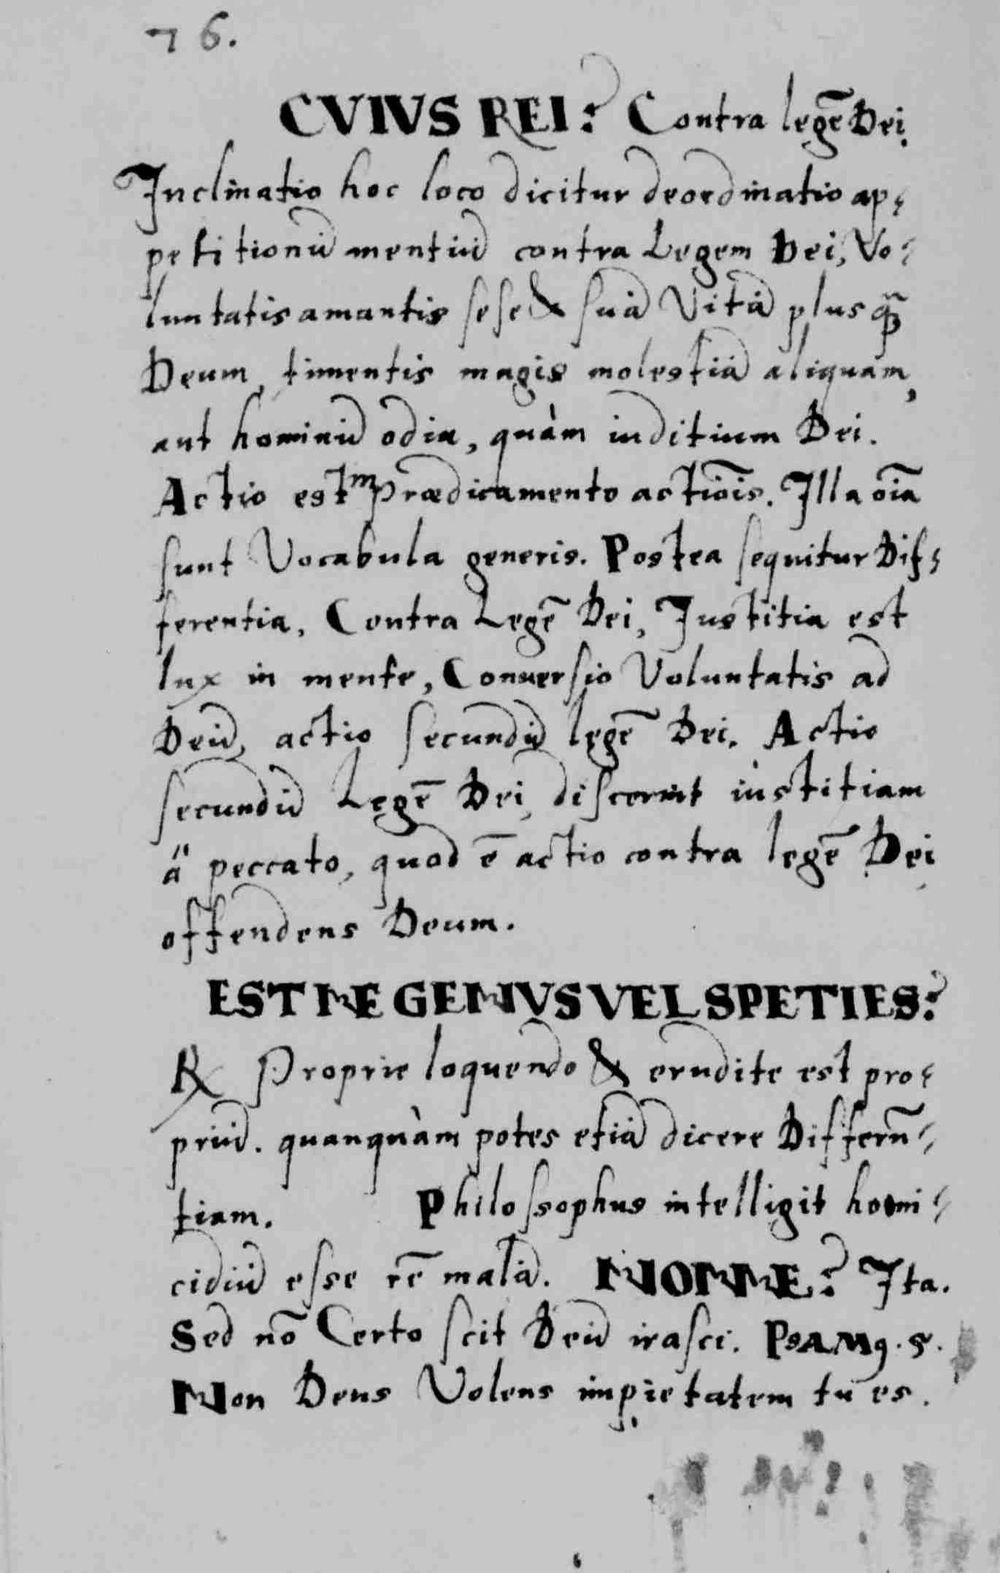 76.
CVIVS REI? Contra legē Dei.
Inclinatio hoc loco dicitur deordinatio ap-
petitionū mentiū contra Legem Dei, Vo-
luntatis amantis sese & suā Vitā plus quā
Deum, timentis magis molestiā aliquam,
aut hominū odia, quàm iuditium Dei.
Actio est in Prædicamento actiōis. Illa oīa
sunt Vocabula generis. Postea sequitur Dif-
ferentia, Contra Legē Dei, Justitia est
lux in mente, Conuersio Voluntatis ad
Deū, actio secundū legē Dei. Actio
secundū Legē Dei, discernit iustitiam
ä peccato, quod ē actio contra legē Dei
offendens Deum.
ESTNE GENVS VEL SPETIES?
R Proprie loquendo & erudite est pro-
priū. quanquàm potes etiā dicere Differn̄-
tiam. Philossophus intelligit homi-
cidiū esse rē malā. NONNE? Ita.
Sed nō Certo scit Deū irasci. PsAM9. 5.
Non Deus Volens impietatem tu es.